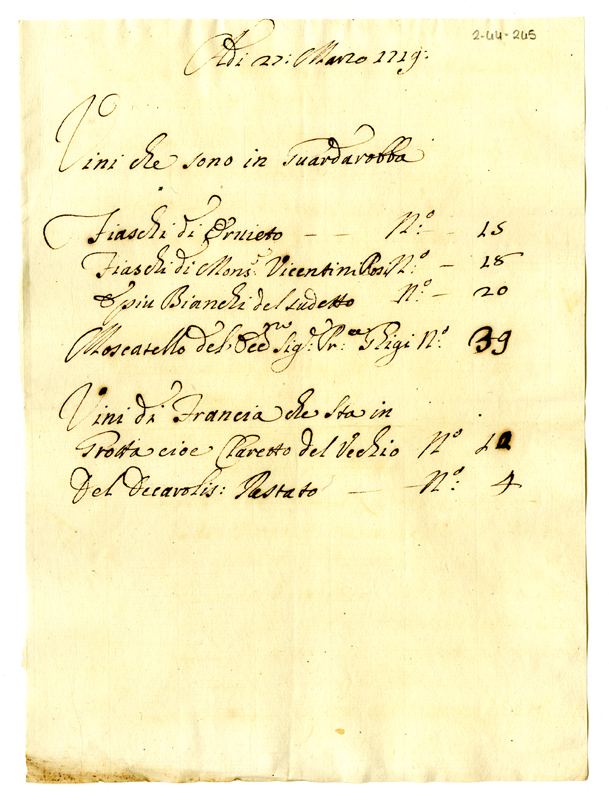 2-44-245
Adi 27: Marzo 1719:
Vini che sono in Guardarobba
Fiaschi di Orvieto — — N.º — 15
Fiaschi di Mons.r Vicentini Rossi N.º — 18
E piu Bianchi del sudetto N.º — 20
Moscatello del Sig.r Pr: Ghigi N.º 39
Vini di Francia che sta in
Grotta cioe Claretto del Vechio N.º 12
Del Decarolis: Pastato — N.º: 4